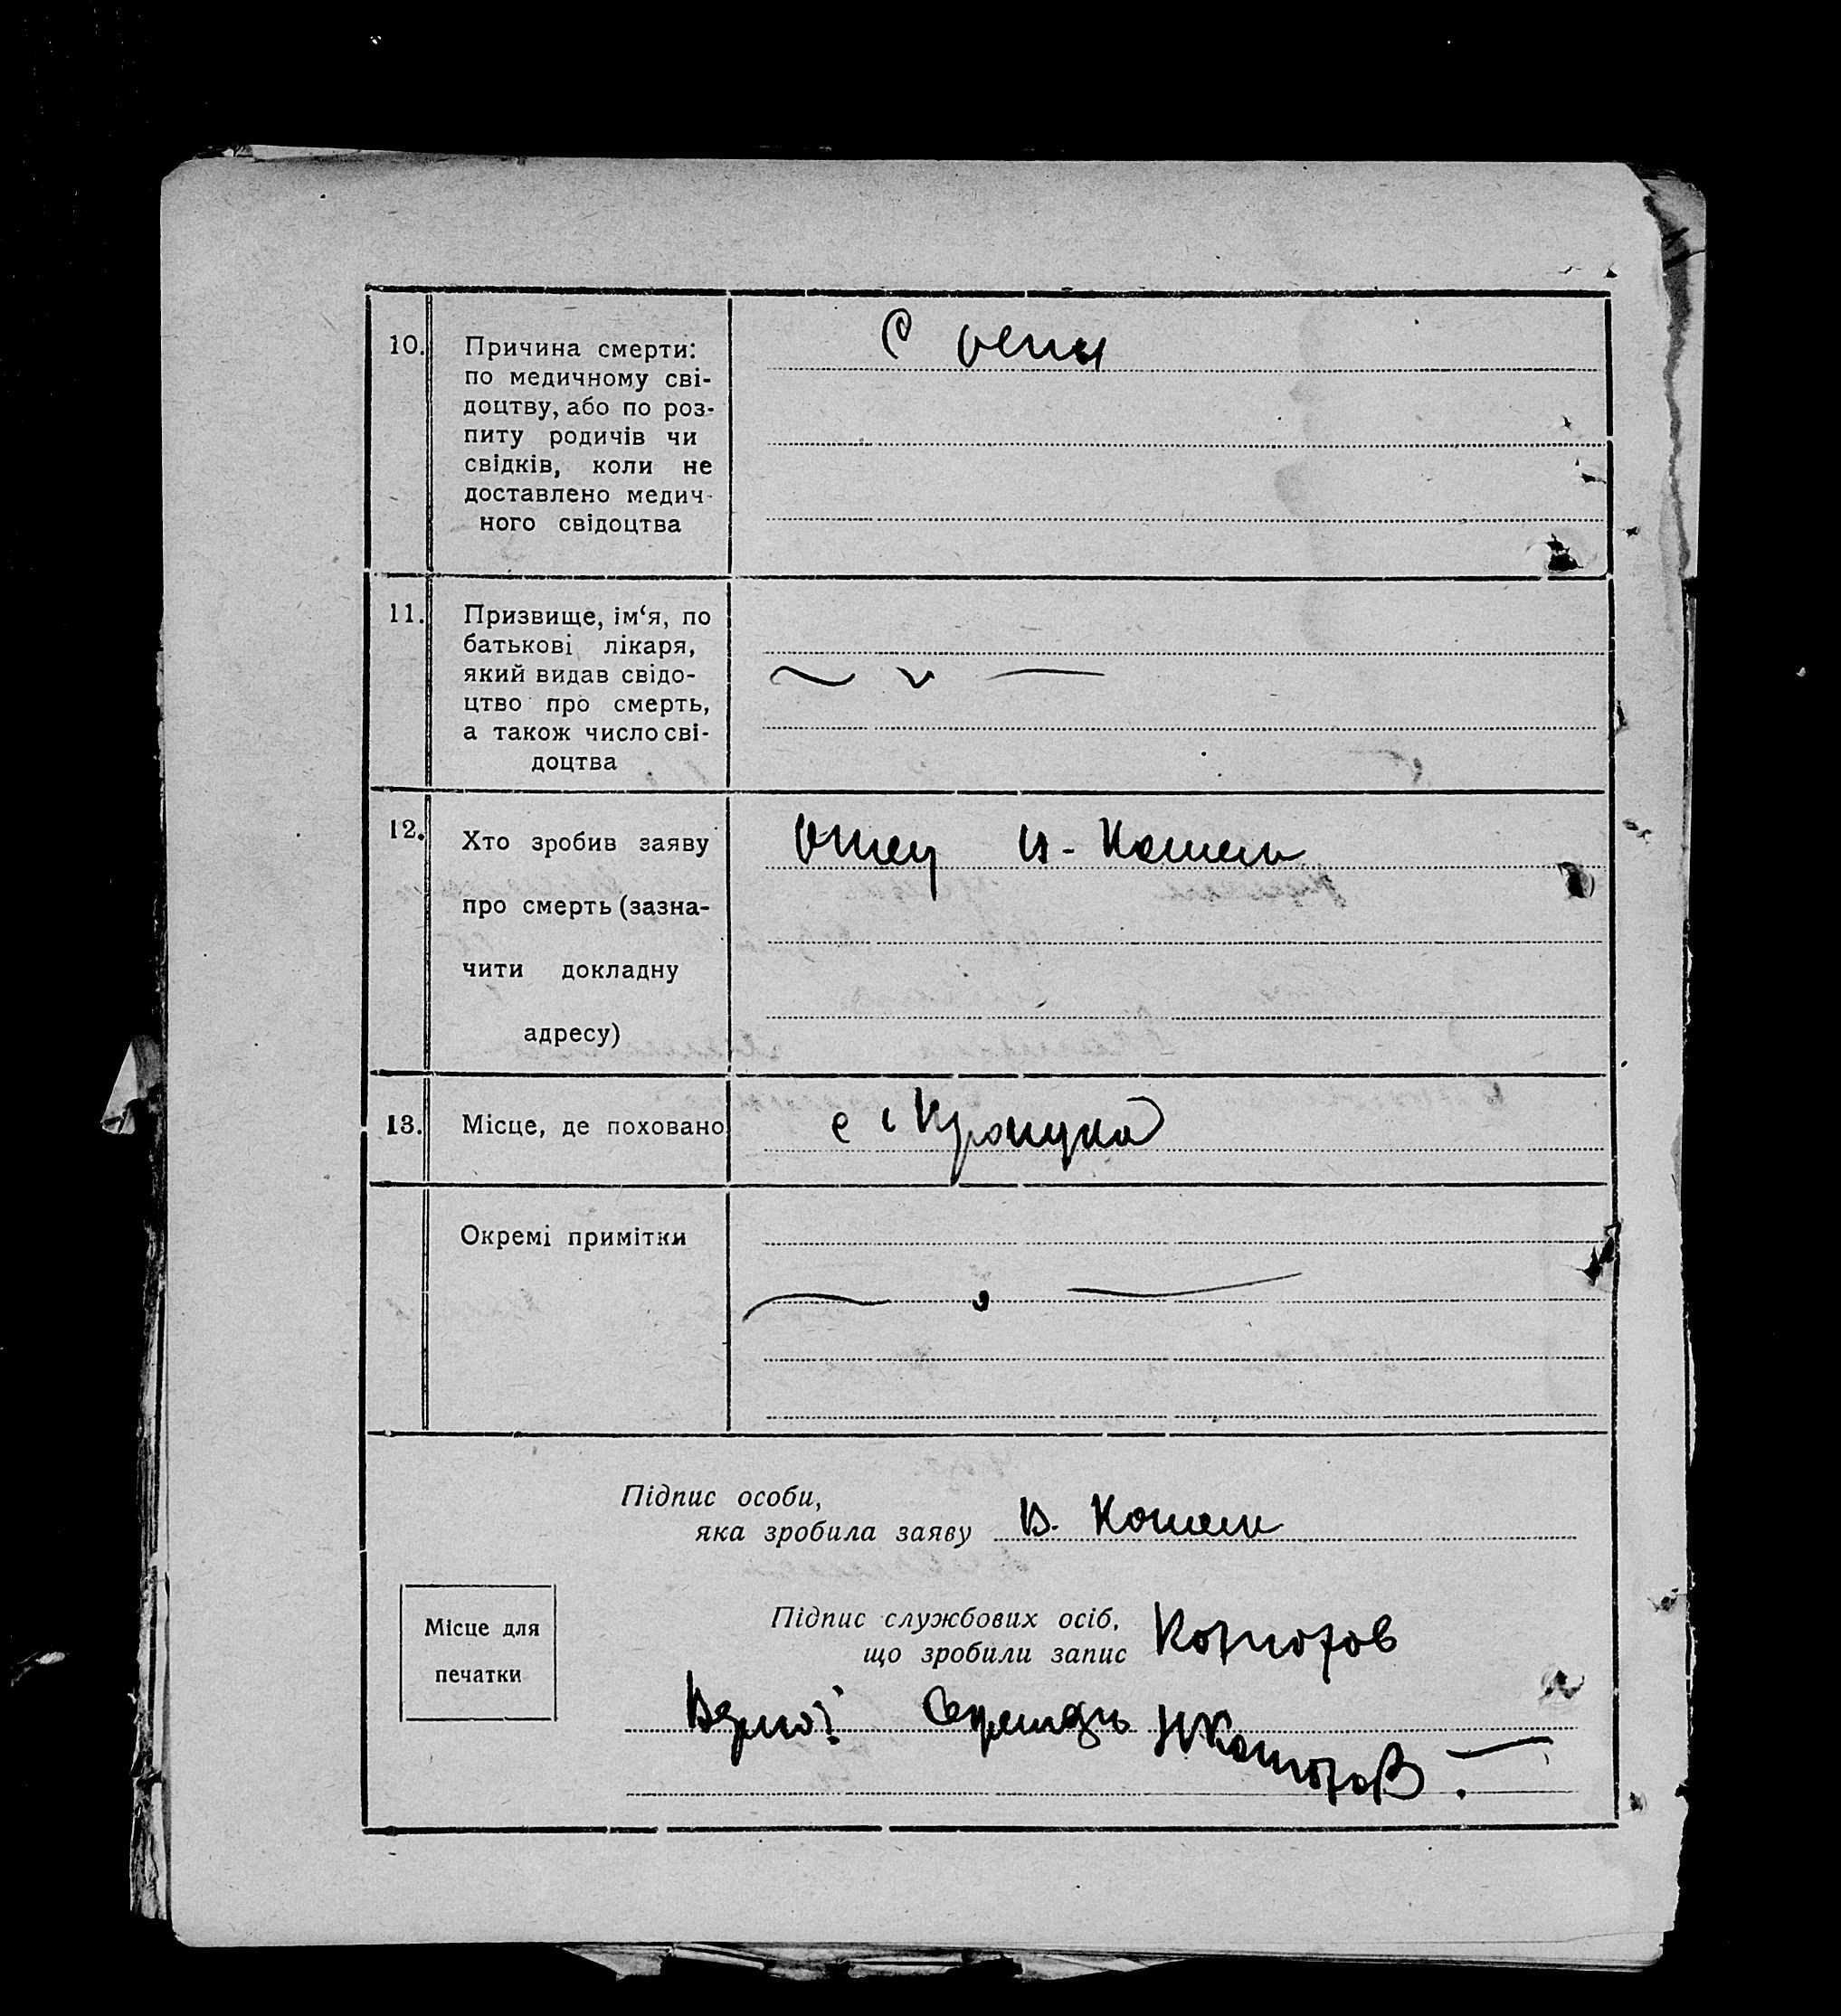 10. Причина смерти:
по медичному сві-
доцтву, або по роз-
питу родичів чи
свідків, коли не
доставлено медич-
ного свідоцтва
С оспи
11. Призвище, ім‘я, по
батькові лікаря,
який видав свідо-
цтво про смерть,
а також число сві-
доцтва
12. Хто зробив заяву
про смерть (зазна-
чити докладну
адресу)
Отец
13. Місце, де поховано
Окремі примітки
Підпис особи,
яка зробила заяву
Підпис службових осіб,
що зробили запис
Місце для
печатки